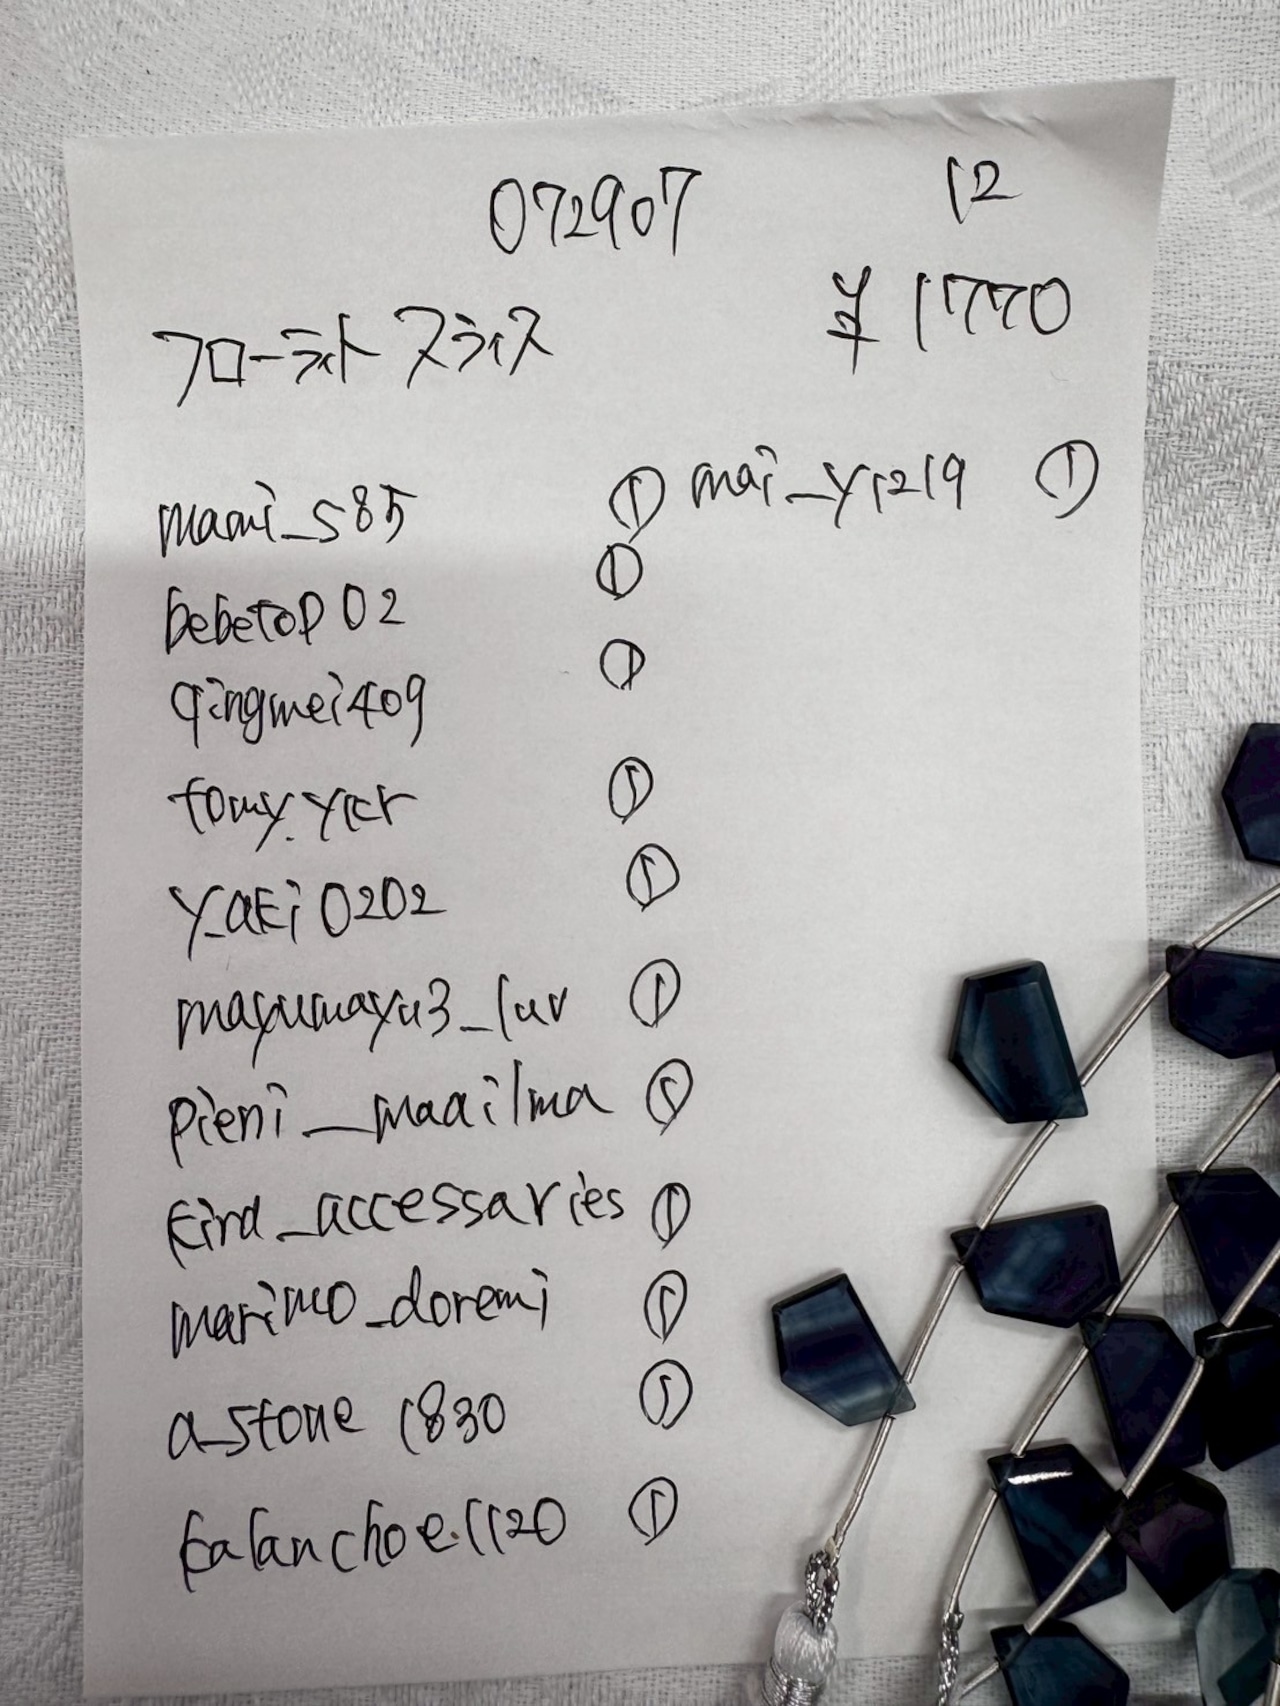 072907 12
¥1770
フローライト スライス
mami_s85 ①
bebetop02 ①
qingmei409 ①
tomy.yier ①
y_aki0202 ①
mayumayu3_luv ①
pieni_maailma ①
kira_accessaries ①
marimo_doremi ①
a_stone1830 ①
kalanchoe.1120 ①
mai_y1219 ①